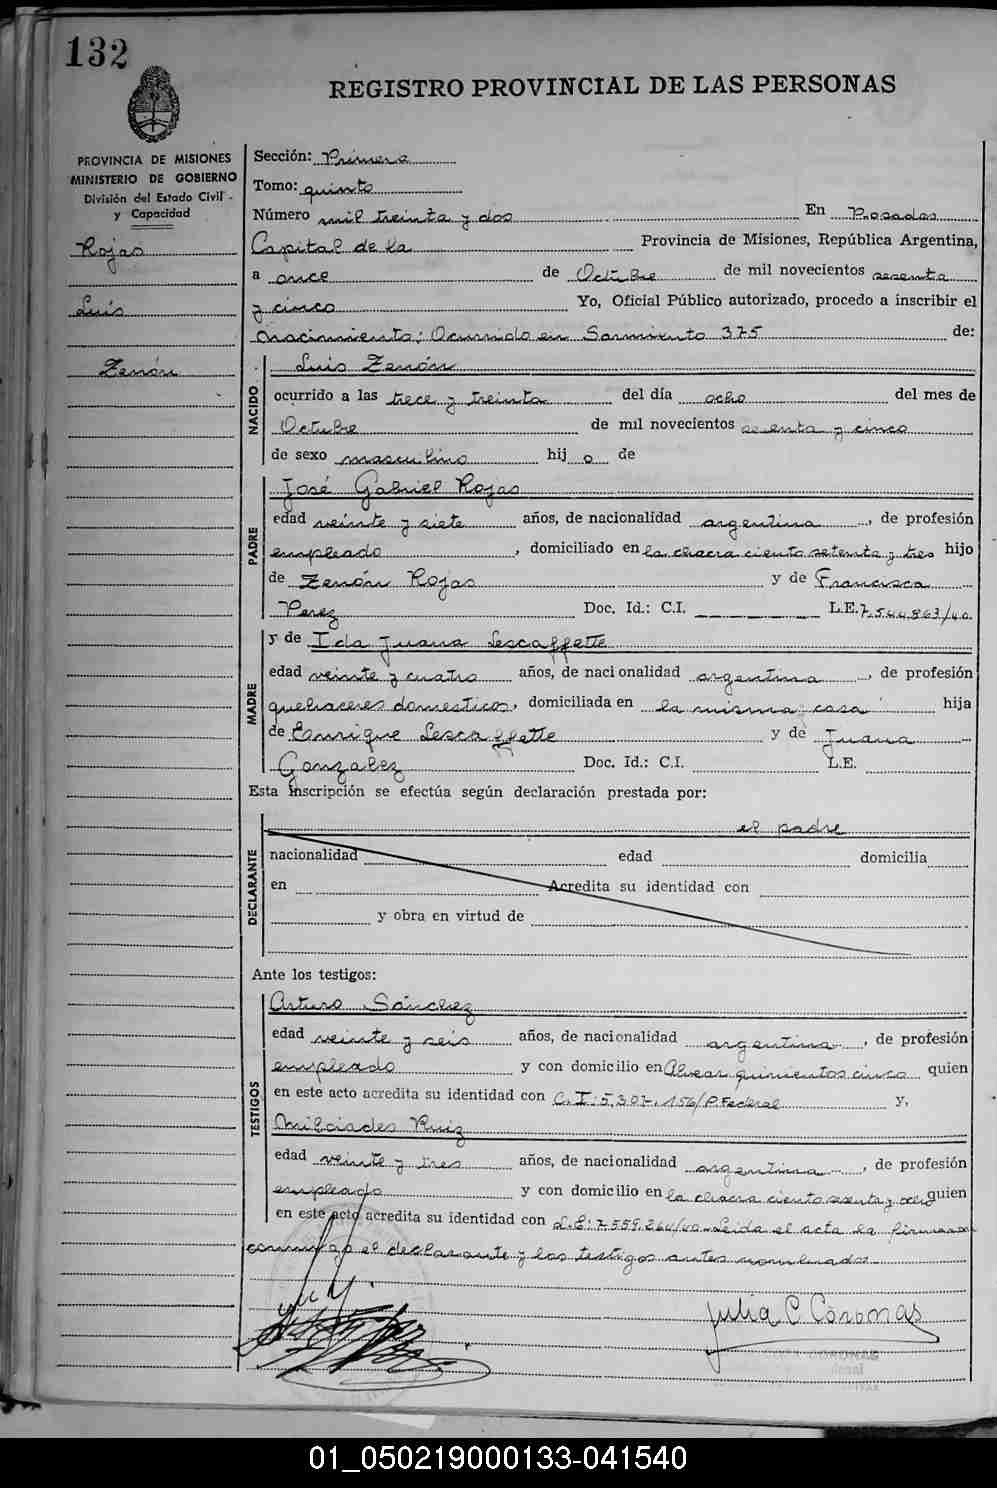 132
REGISTRO PROVINCIAL DE LAS PERSONAS
PROVINCIA DE MISIONES
MINISTERIO DE GOBIERNO
División del Estado Civil
y Capacidad
Rojas
Luis
Zenón
Sección: Primera
Tomo: quinto
Número mil treinta y dos En Posadas
Capital de la Provincia de Misiones, República Argentina,
a once de Octubre de mil novecientos sesenta
y cinco Yo, Oficial Público autorizado, procedo a inscribir el
nacimiento; Ocurrido en Sarmiento 375 de:
NACIDO
Luis Zenón
ocurrido a las trece y treinta del día ocho del mes de
Octubre de mil novecientos sesenta y cinco
de sexo masculino hij o de
PADRE
José Gabriel Rojas
edad veinte y siete años, de nacionalidad argentina, de profesión
empleado, domiciliado en la chacra ciento setenta y tres hijo
de Zenón Rojas y de Francisca
Perez Doc. Id.: C.I. L.E. 7.544.863/40
MADRE
y de Ida Juana Lescaffette
edad veinte y cuatro años, de nacionalidad argentina, de profesión
quehaceres domesticos, domiciliada en la misma casa hija
de Enrique Lescaffette y de Juana
Gonzalez Doc. Id.: C.I. L.E.
Esta inscripción se efectúa según declaración prestada por:
DECLARANTE
el padre
nacionalidad edad domicilia
en Acredita su identidad con
y obra en virtud de
Ante los testigos:
TESTIGOS
Arturo Sánchez
edad veinte y seis años, de nacionalidad argentina, de profesión
empleado y con domicilio en Alvear quinientos cinco quien
en este acto acredita su identidad con C.I: 5.307.156/P.Federal y,
Milciades Ruiz
edad veinte y tres años, de nacionalidad argentina, de profesión
empleado y con domicilio en la chacra ciento sesenta y ocho quien
en este acto acredita su identidad con L.E: 7.559.264/40. Leida el acta la firmaron
conmigo el declarante y los testigos antes nombrados
Julia C. Coronas
CORONAS
01_050219000133-041540